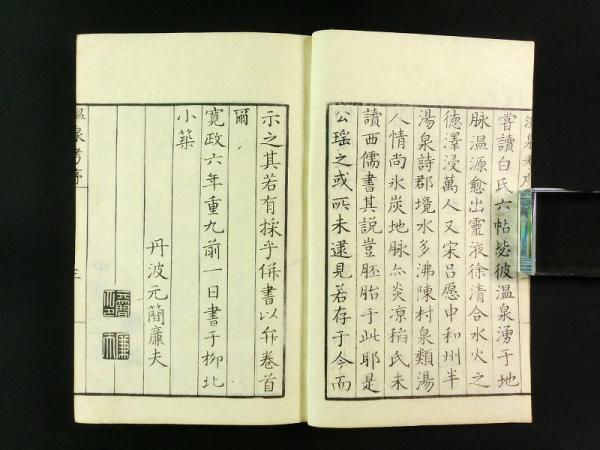 嘗讀白氏六帖毖彼温泉湧于地
脉温源愈出靈液徐清合水火之
德澤浸萬人又宋呂愿中和州半
湯泉詩郡境水多沸陳村泉類湯
人情尚氷炭地脉尒炎凉稲氏未
讀西儒書其說豈胚胎于此耶是
公瑶之或所未逮見若存于今而
示之其若有採乎併書以弁卷首
爾
寛政六年重九前一日書于柳北
小築
丹波元簡廉夫
温泉考序
三